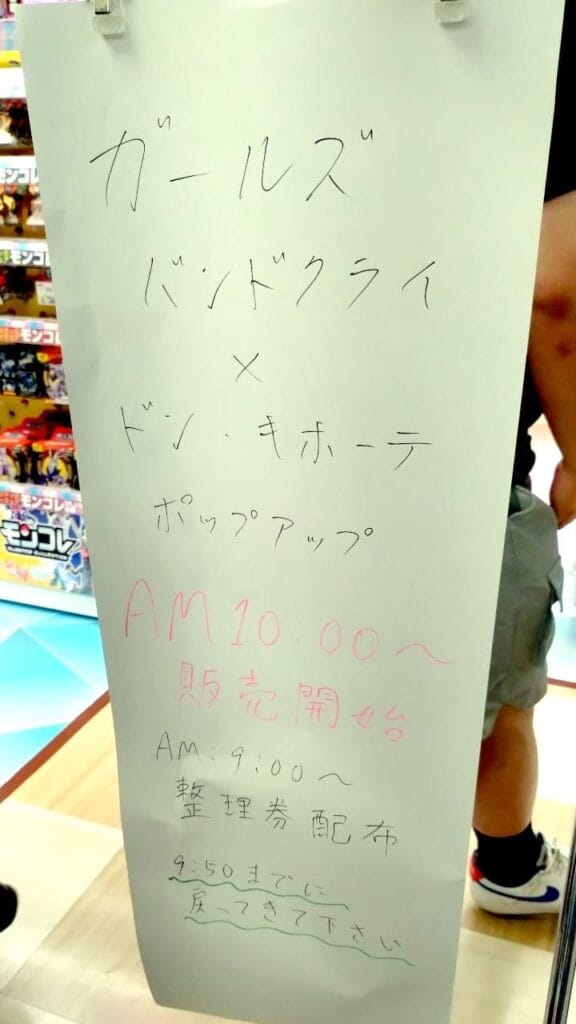 ガールズ
バンドクライ
×
ドン・キホーテ
ポップアップ
AM10:00～
販売開始
AM:9:00～
整理券配布
9:50までに
戻ってきて下さい
モンコレ
モンコレ
モンコレ
モンコレ
モンコレ